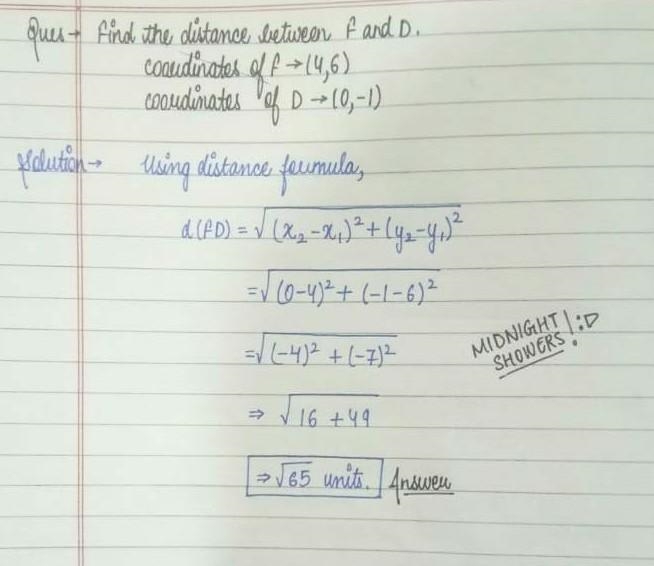 Ques → Find the distance between F and D.
coordinates of F → (4,6)
coordinates of D → (0,-1)
Solution → Using distance formula,
d(FD) = √(x₂-x₁)²+(y₂-y₁)²
=√(0-4)²+(-1-6)²
=√(-4)²+(-7)²
⇒ √16+49
⇒√65 units. Answer
MIDNIGHT
SHOWERS! :D